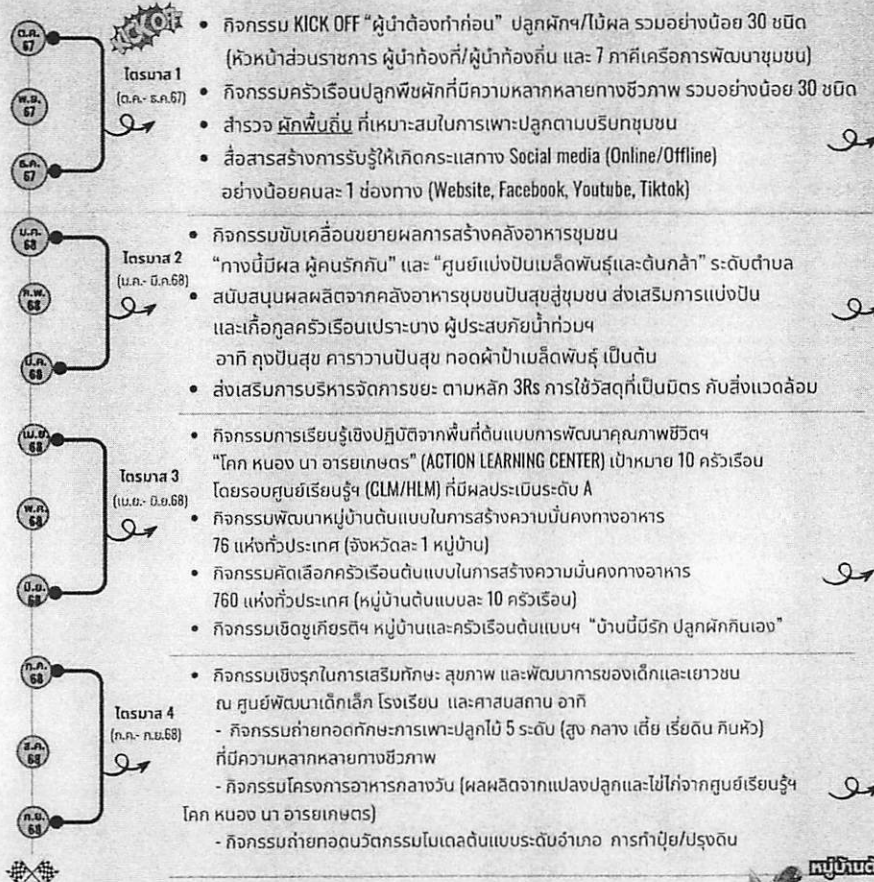 KICK OFF
ต.ค. 67
พ.ย. 67
ธ.ค. 67
ไตรมาส 1
(ต.ค.- ธ.ค.67)
• กิจกรรม KICK OFF “ผู้นำต้องทำก่อน” ปลูกผักฯ/ไม้ผล รวมอย่างน้อย 30 ชนิด
(หัวหน้าส่วนราชการ ผู้นำท้องที่/ผู้นำท้องถิ่น และ 7 ภาคีเครือการพัฒนาชุมชน)
• กิจกรรมครัวเรือนปลูกพืชผักที่มีความหลากหลายทางชีวภาพ รวมอย่างน้อย 30 ชนิด
• สำรวจ ผักพื้นถิ่น ที่เหมาะสมในการเพาะปลูกตามบริบทชุมชน
• สื่อสารสร้างการรับรู้ให้เกิดกระแสทาง Social media (Online/Offline)
อย่างน้อยคนละ 1 ช่องทาง (Website, Facebook, Youtube, Tiktok)
ม.ค. 68
ก.พ. 68
มี.ค. 68
ไตรมาส 2
(ม.ค.- มี.ค.68)
• กิจกรรมขับเคลื่อนขยายผลการสร้างคลังอาหารชุมชน
“ทางนี้มีผล ผู้คนรักกัน” และ “ศูนย์แบ่งปันเมล็ดพันธุ์และต้นกล้า” ระดับตำบล
• สนับสนุนผลผลิตจากคลังอาหารชุมชนปันสุขสู่ชุมชน ส่งเสริมการแบ่งปัน
และเกื้อกูลครัวเรือนเปราะบาง ผู้ประสบภัยน้ำท่วมฯ
อาทิ ถุงปันสุข คาราวานปันสุข ทอดผ้าป่าเมล็ดพันธุ์ เป็นต้น
• ส่งเสริมการบริหารจัดการขยะ ตามหลัก 3Rs การใช้วัสดุที่เป็นมิตร กับสิ่งแวดล้อม
เม.ย. 68
พ.ค. 68
มิ.ย. 68
ไตรมาส 3
(เม.ย.- มิ.ย.68)
• กิจกรรมการเรียนรู้เชิงปฏิบัติจากพื้นที่ต้นแบบการพัฒนาคุณภาพชีวิตฯ
“โคก หนอง นา อารยเกษตร” (ACTION LEARNING CENTER) เป้าหมาย 10 ครัวเรือน
โดยรอบศูนย์เรียนรู้ฯ (CLM/HLM) ที่มีผลประเมินระดับ A
• กิจกรรมพัฒนาหมู่บ้านต้นแบบในการสร้างความมั่นคงทางอาหาร
76 แห่งทั่วประเทศ (จังหวัดละ 1 หมู่บ้าน)
• กิจกรรมคัดเลือกครัวเรือนต้นแบบในการสร้างความมั่นคงทางอาหาร
760 แห่งทั่วประเทศ (หมู่บ้านต้นแบบละ 10 ครัวเรือน)
• กิจกรรมเชิดชูเกียรติฯ หมู่บ้านและครัวเรือนต้นแบบฯ “บ้านนี้มีรัก ปลูกผักกินเอง”
ก.ค. 68
ส.ค. 68
ก.ย. 68
ไตรมาส 4
(ก.ค.- ก.ย.68)
• กิจกรรมเชิงรุกในการเสริมทักษะ สุขภาพ และพัฒนาการของเด็กและเยาวชน
ณ ศูนย์พัฒนาเด็กเล็ก โรงเรียน และศาสนสถาน อาทิ
- กิจกรรมถ่ายทอดทักษะการเพาะปลูกไม้ 5 ระดับ (สูง กลาง เตี้ย เรี่ยดิน กินหัว)
ที่มีความหลากหลายทางชีวภาพ
- กิจกรรมโครงการอาหารกลางวัน (ผลผลิตจากแปลงปลูกและไข่ไก่จากศูนย์เรียนรู้ฯ
โคก หนอง นา อารยเกษตร)
- กิจกรรมถ่ายทอดนวัตกรรมโมเดลต้นแบบระดับอำเภอ การทำปุ๋ย/ปรุงดิน